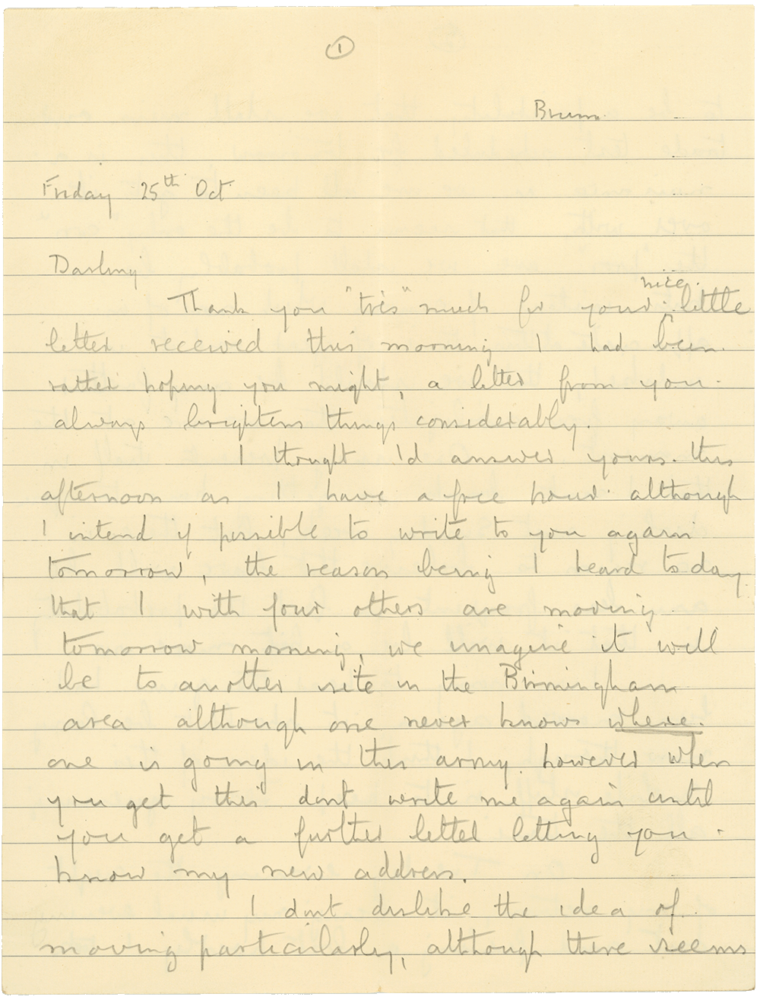 1
Brum.
Friday 25th Oct
Darling
nice
Thank you "très" much for your little
letter received this morning I had been
rather hoping you might, a letter from you
always brightens things considerably.
I thought I'd answer yours this
afternoon as I have a free hour although
I intend if possible to write to you again
tomorrow, the reason being I heard today
that I with four others are moving
tomorrow morning, we imagine it will
be to another site in the Birmingham
area although one never knows where
one is going in this army. however when
you get this dont write me again until
you get a further letter letting you
know my new address.
I dont dislike the idea of
moving particularly, although there seems